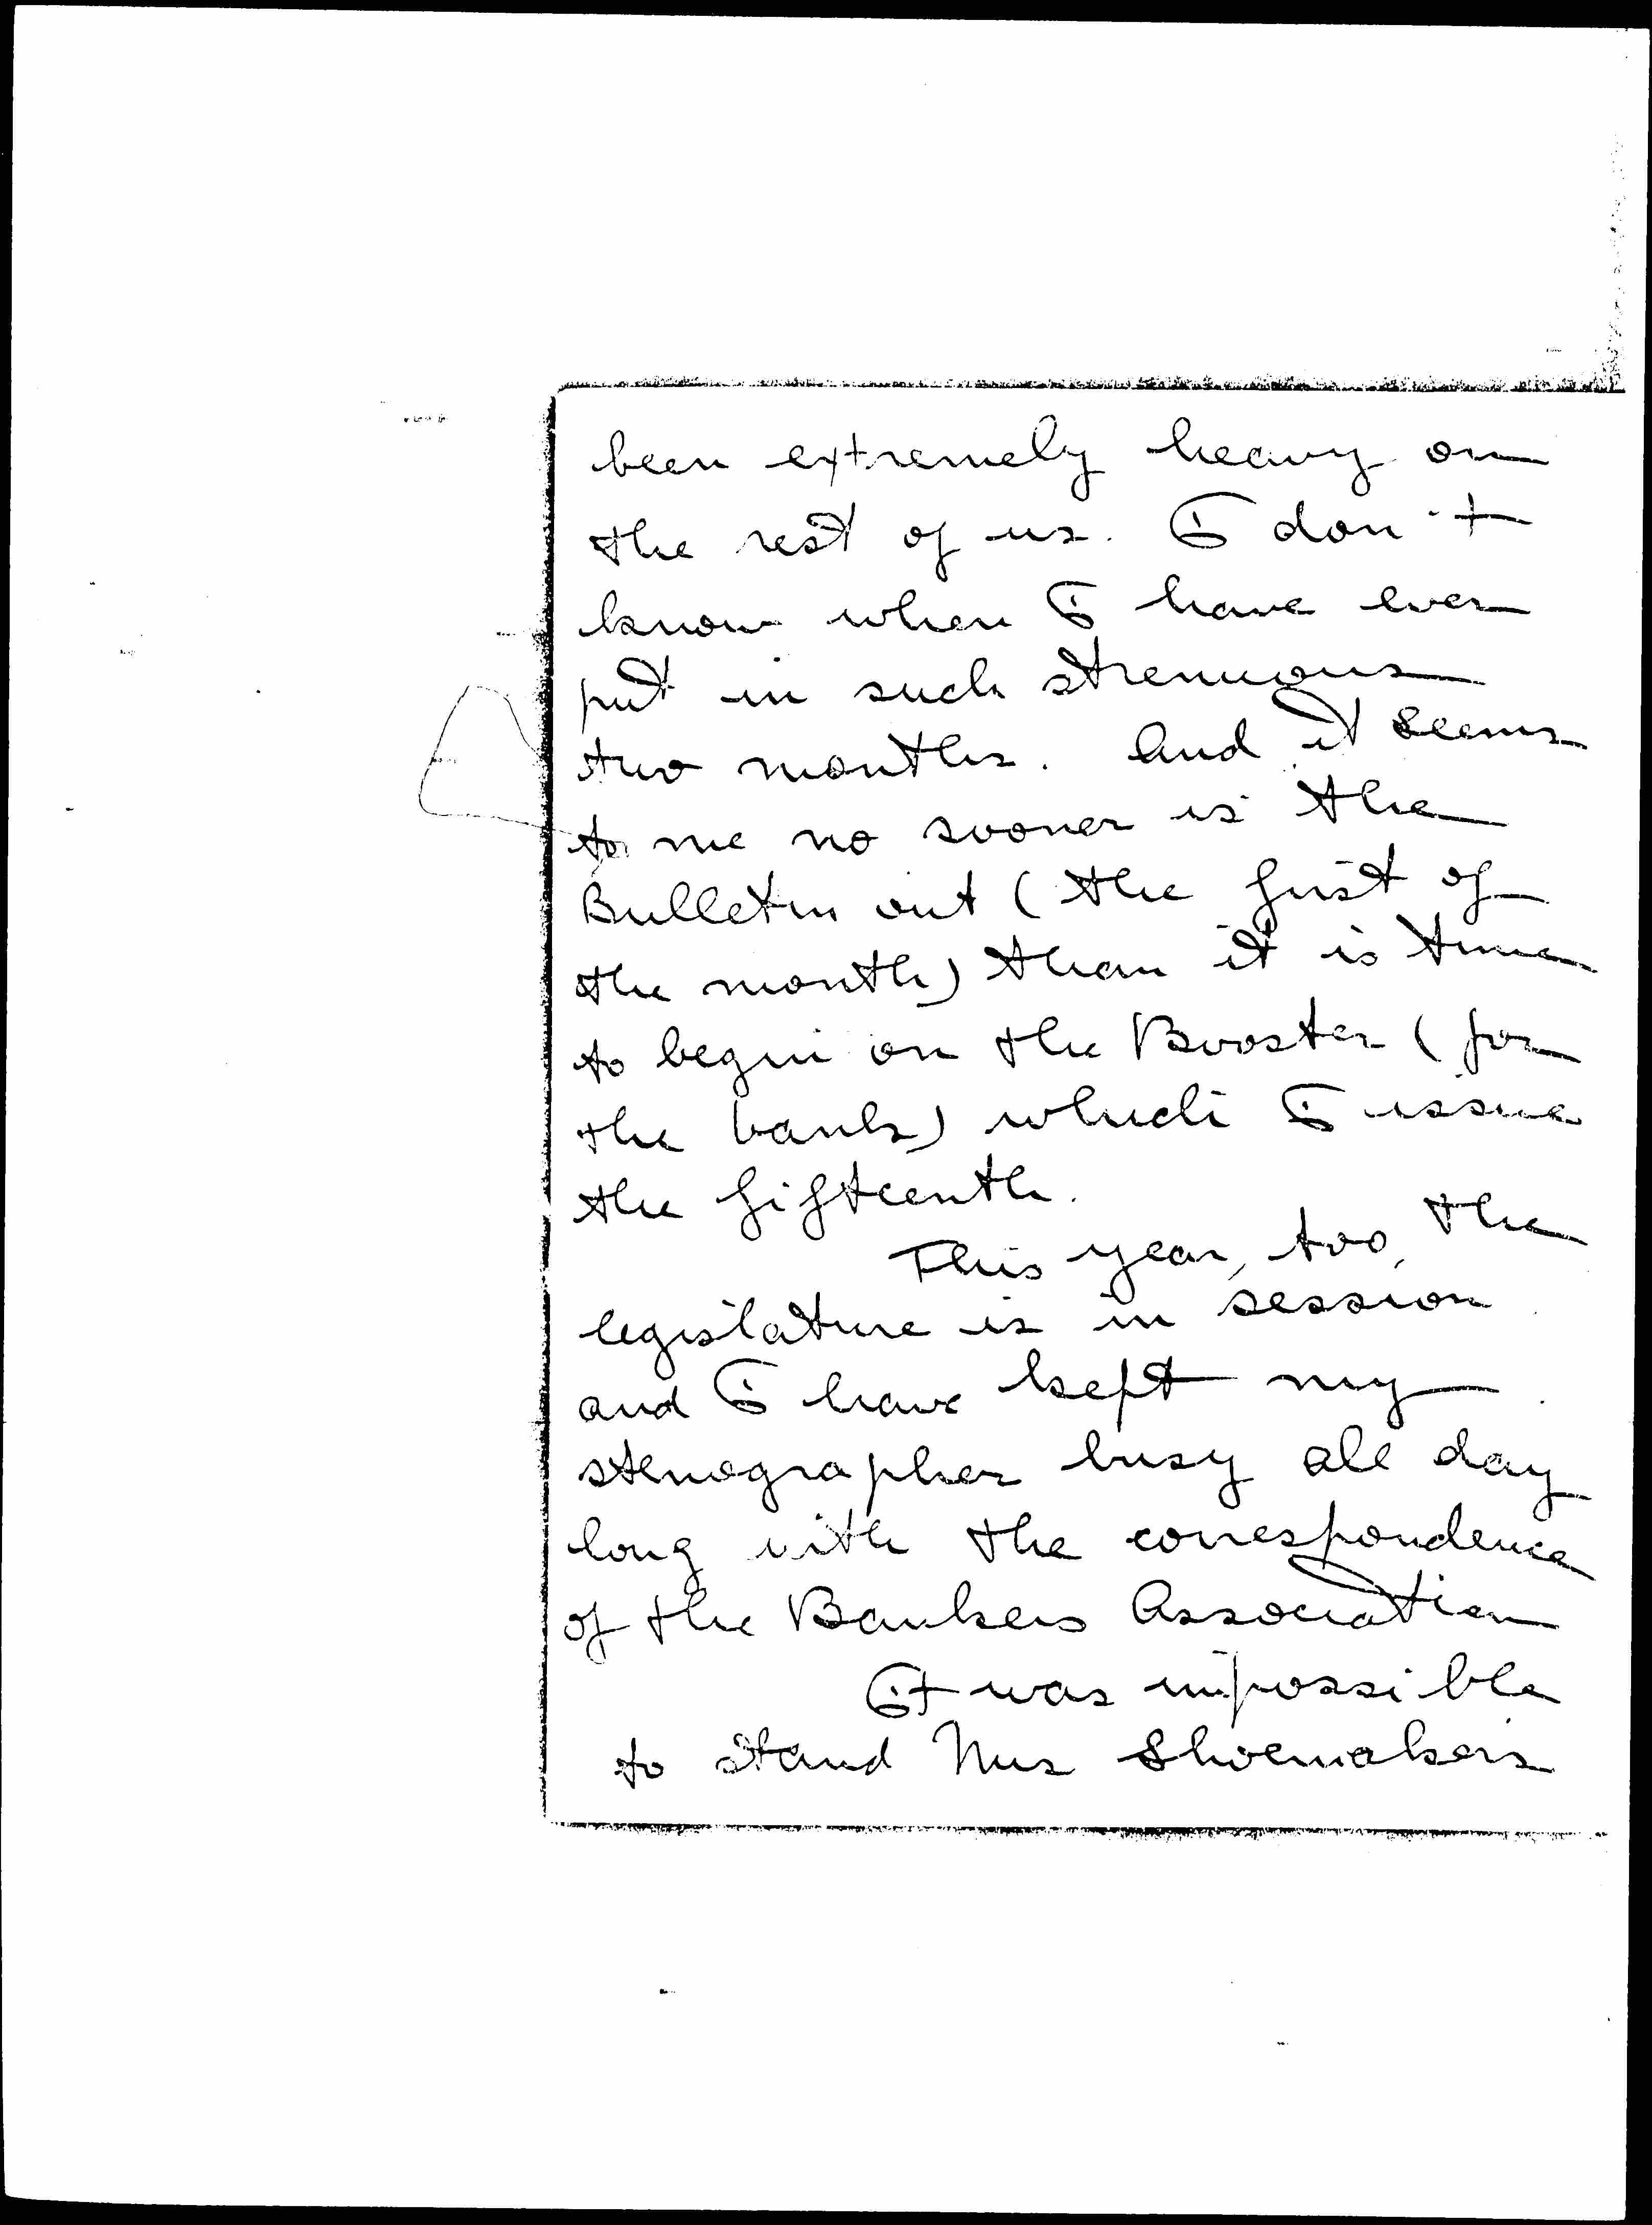 been extremely heavy on
the rest of us. I don't
know when I have ever
put in such strenuous
two months. And it seems
to me no sooner is the
Bulletin out (the first of
the month) than it is time
to begin on the Booster (for
the bank) which I issue
the fifteenth.
This year, too, the
legislature is in session
and I have kept my
stenographer busy all day
long with the correspondence
of the Bankers Association
It was impossible
to stand Mrs Shoemakers